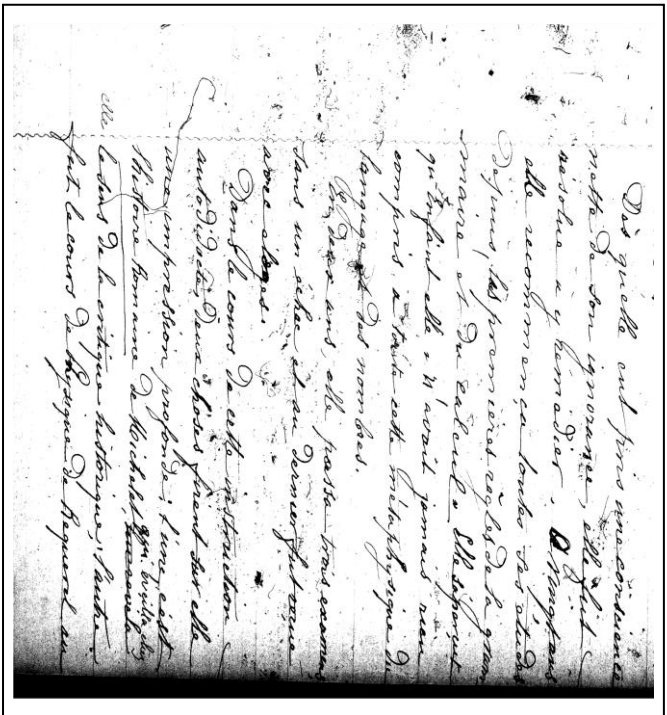 Dès qu'elle eut pris une conscience
nette de son ignorance, elle fut
résolue à y remédier. A vingt ans
elle recommença toutes ses études
depuis les premières règles de la gram
maire et du calcul. Elle
qu'enfant elle n'avait jamais rien
compris à toute cette métaphysique du
langage et des nombres.
En deux ans, elle passa trois examens
sans un échec et au dernier fut reçue
avec éloges.
Dans le cours de cette instruction
autodidacte, deux choses firent sur elle
une impression profonde : l'une c'est
l'histoire Romaine de Michelet qui éveilla chez
elle le sens de la critique historique; l'autre
fut le cours de physique de Becquerel au